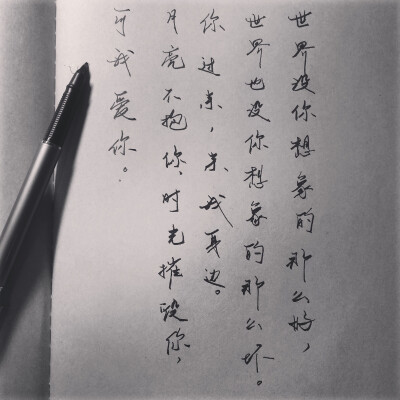 世界没你想象的那么好，
世界也没你想象的那么坏。
你过来，来我身边。
月亮不抱你，时光摧毁你，
可我爱你。